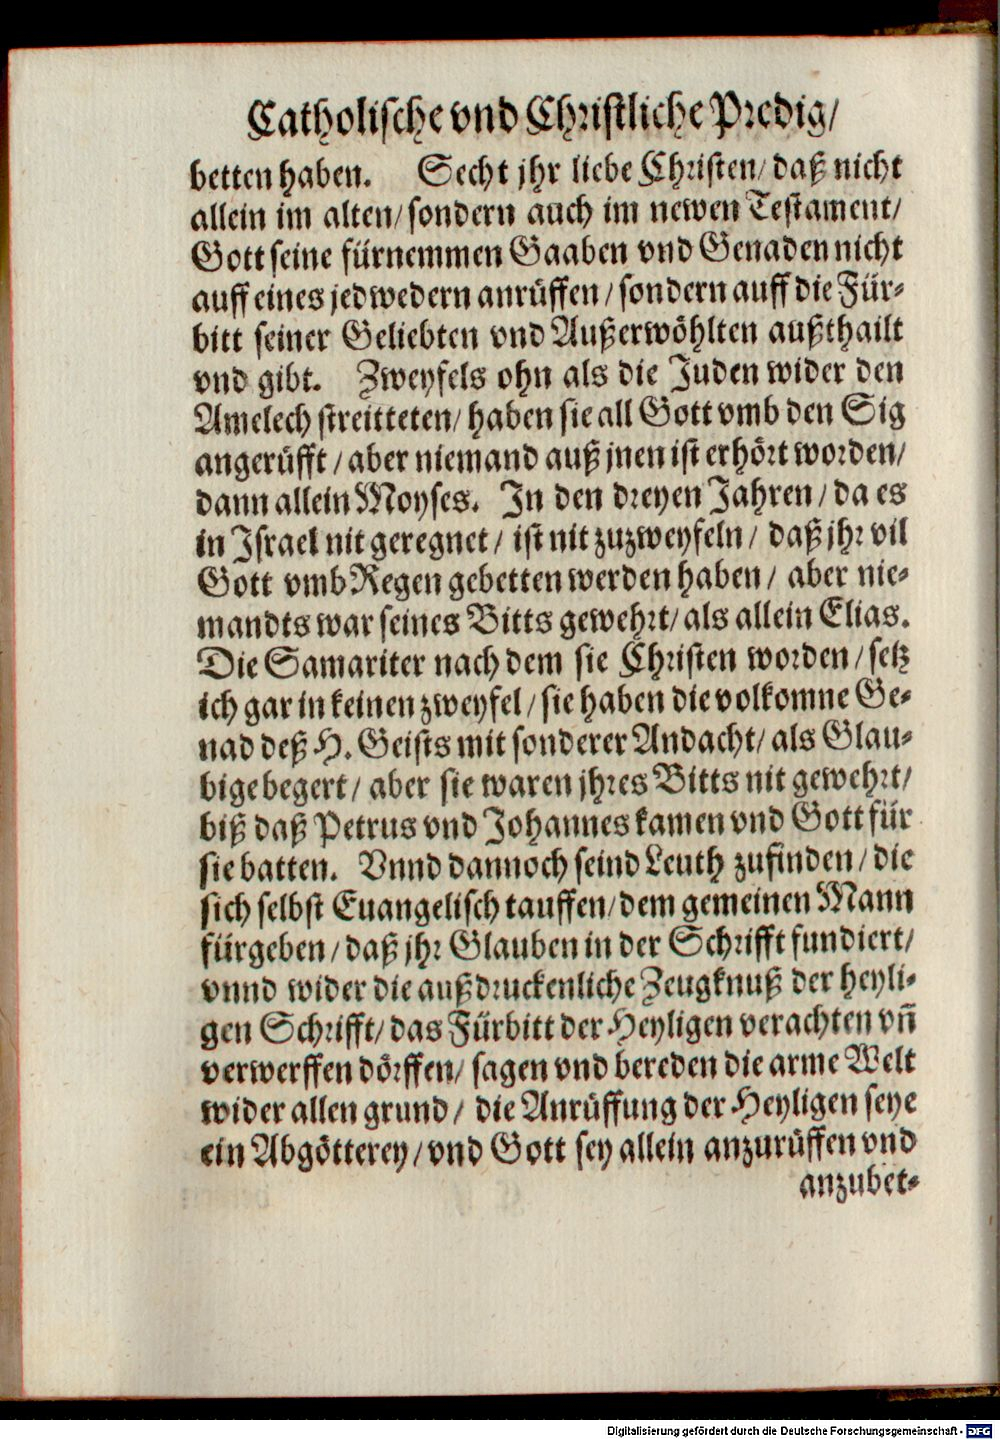 Catholische vnd Christliche Predig/
betten haben. Secht jhr liebe Christen/ daß nicht
allein im alten/ sondern auch im newen Testament/
Gott seine fürnemmen Gaaben vnd Genaden nicht
auff eines jedwedern anrüffen/ sondern auff die Für-
bitt seiner Geliebten vnd Außerwöhlten außthailt
vnd gibt. Zweyfels ohn als die Juden wider den
Amelech streitteten/ haben sie all Gott vmb den Sig
angerüfft/ aber niemand auß jnen ist erhört worden/
dann allein Moyses. In den dreyen Jahren/ da es
in Israel nit geregnet/ ist nit zuzweyfeln/ daß jhr vil
Gott vmb Regen gebetten werden haben/ aber nie-
mandts war seines Bitts gewehrt/ als allein Elias.
Die Samariter nach dem sie Christen worden/ setz
ich gar in keinen zweyfel/ sie haben die volkomne Ge-
nad deß H. Geists mit sonderer Andacht/ als Glau-
bige begert/ aber sie waren jhres Bitts nit gewehrt/
biß daß Petrus vnd Johannes kamen vnd Gott für
sie batten. Vnnd dannoch seind Leuth zufinden/ die
sich selbst Euangelisch tauffen/ dem gemeinen Mann
fürgeben/ daß jhr Glauben in der Schrifft fundiert/
vnnd wider die außdruckenliche Zeugknuß der heyli-
gen Schrifft/ das Fürbitt der Heyligen verachten vn̄
verwerffen dörffen/ sagen vnd bereden die arme Welt
wider allen grund/ die Anrüffung der Heyligen seye
ein Abgötterey/ vnd Gott sey allein anzurüffen vnd
anzubet-
Digitalisierung gefördert durch die Deutsche Forschungsgemeinschaft - DFG